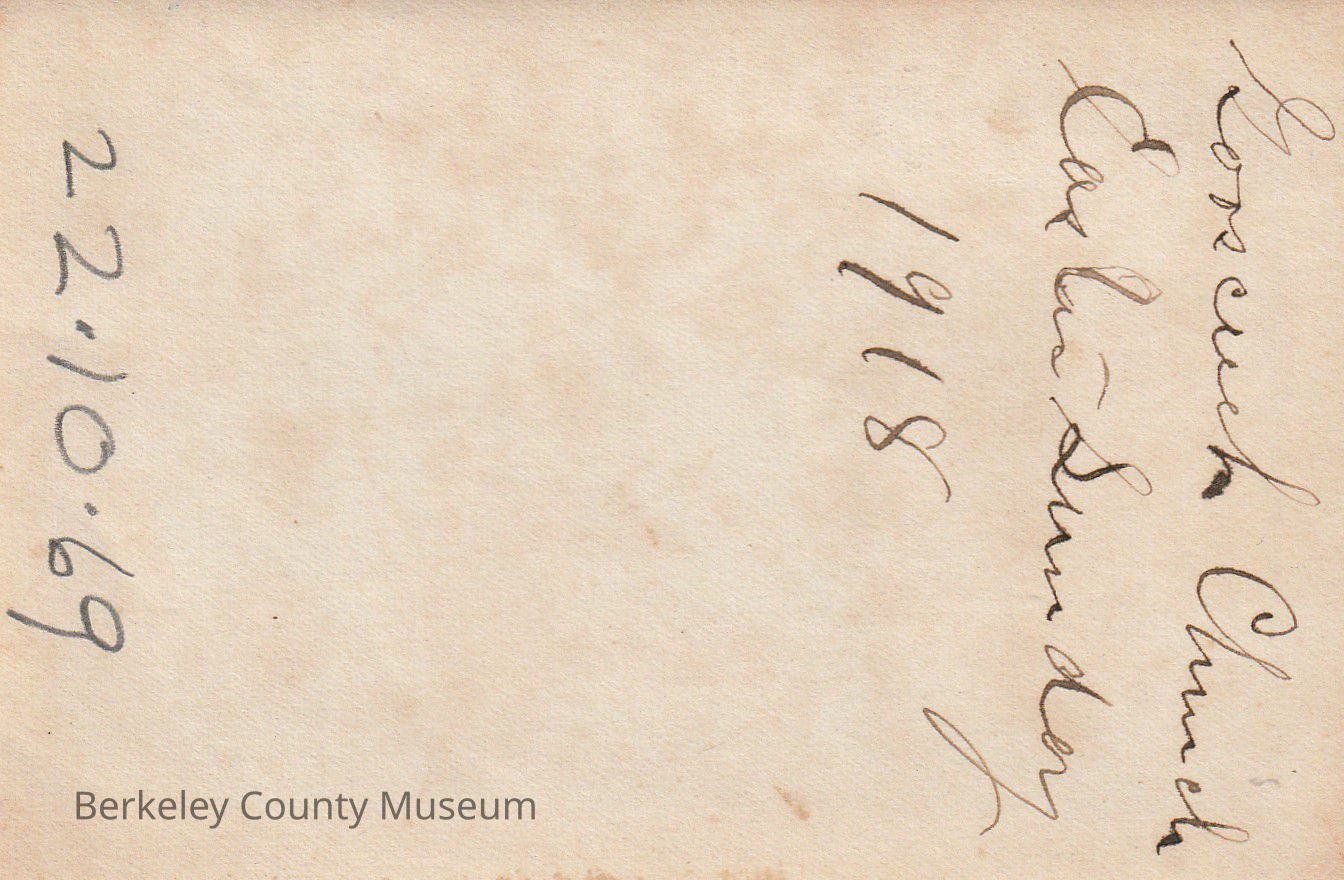 Gooscreek Church
Easter Sunday
1918
22.10.69
Berkeley County Museum